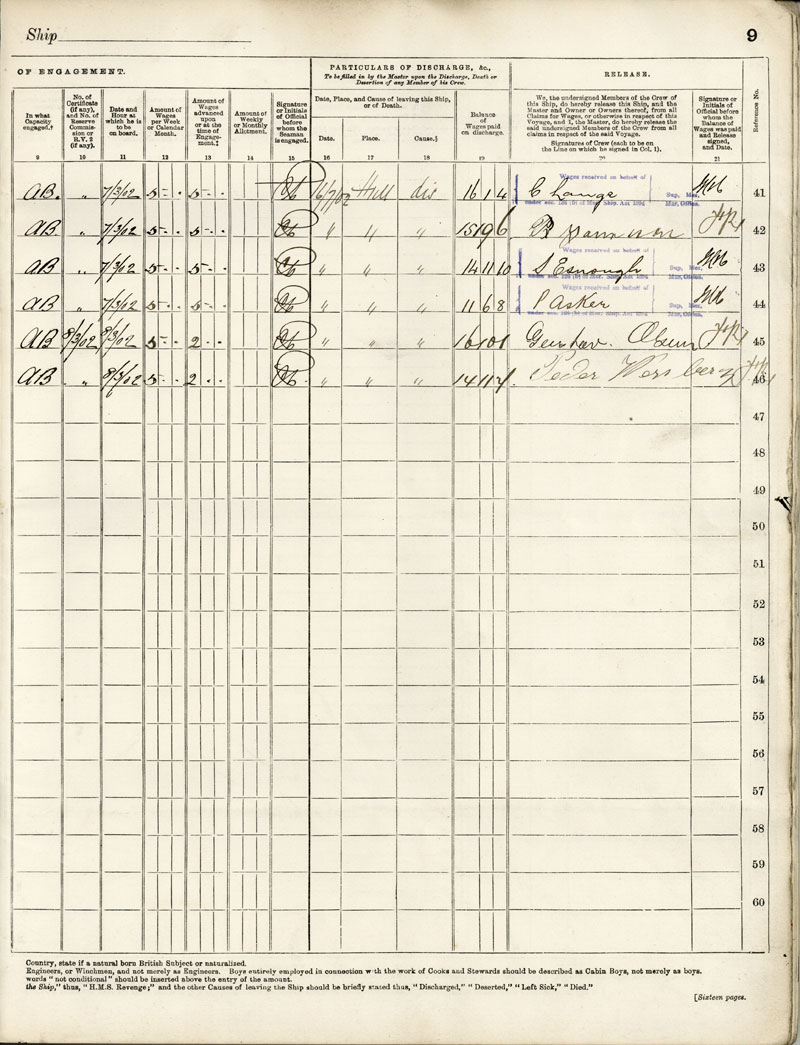 Ship 9
OF ENGAGEMENT.
PARTICULARS OF DISCHARGE, &c.,
To be filled in by the Master upon the Discharge, Death or
Desertion of any Member of his Crew.
RELEASE.
Reference No.
In what
Capacity
engaged.†
No. of
Certificate
(if any),
and No. of
Reserve
Commis-
sion or
R.V. 2
(if any).
Date and
Hour at
which he is
to be
on board.
Amount of
Wages
per Week
or Calendar
Month.
Amount of
Wages
advanced
upon
or at the
time of
Engage-
ment.‡
Amount of
Weekly
or Monthly
Allotment.
Signature
or Initials
of Official
before
whom the
Seaman
is engaged.
Date, Place, and Cause of leaving this Ship,
or of Death.
Date. Place. Cause.§
Balance
of
Wages paid
on discharge.
We, the undersigned Members of the Crew of
this Ship, do hereby release this Ship, and the
Master and Owner or Owners thereof, from all
Claims for Wages, or otherwise in respect of this
Voyage, and I, the Master, do hereby release the
said undersigned Members of the Crew from all
claims in respect of the said Voyage.
Signatures of Crew (each to be on
the Line on which he signed in Col. 1).
Signature or
Initials of
Official before
whom the
Balance of
Wages was paid
and Release
signed,
and Date.
9 10 11 12 13 14 15 16 17 18 19 20 21
Wages received on behalf of
AB. " 7/3/02 5 - · 5 - · 16/7/02 Hull dis 16 1 4 41
Sup. Mer.
under sec. Mer. Ship. Act 1894 Mar. Office.
AB " 7/3/02 5 - · 5 - · " " " 15 19 6 42
Wages received on behalf of
AB " 7/3/02 5 - · 5 - · " " " 14 11 10 43
Sup. Mer.
Mer. Ship. Act 1894 Mar. Office.
Wages received on behalf of
AB " 7/3/02 5 - · 5 - · " " " 11 6 8 P Asker 44
Sup. Mer.
Mer. Ship. Act 1894 Mar. Office.
AB 8/3/02 8/3/02 5 - · 2 · · " " " 16 10 1 45
AB " 8/3/02 5 - · 2 · · " " " 14 11 46
47
48
49
50
51
52
53
54
55
56
57
58
59
60
Country, state if a natural born British Subject or naturalized.
Engineers, or Winchmen, and not merely as Engineers. Boys entirely employed in connection with the work of Cooks and Stewards should be described as Cabin Boys, not merely as boys.
words "not conditional" should be inserted above the entry of the amount.
the Ship," thus, "H.M.S. Revenge;" and the other Causes of leaving the Ship should be briefly stated thus, "Discharged," "Deserted," "Left Sick," "Died."
[Sixteen pages.